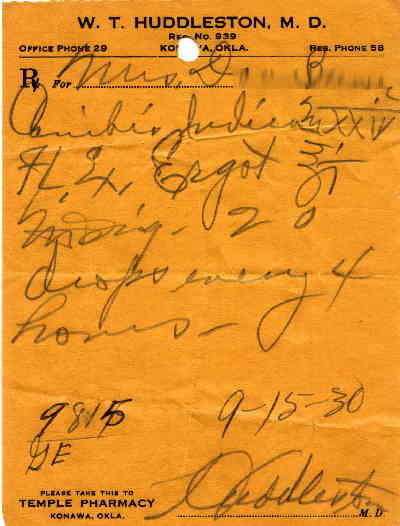 W. T. HUDDLESTON, M. D.
REG. NO. 939
OFFICE PHONE 29 KONAWA, OKLA. RES. PHONE 58
℞ For Mrs. D.
Cannibis Indica ʒ xxiv
H. Ex. Ergot ʒ
M Sig. 20
drops every 4
hours —
9815 9-15-30
GE
PLEASE TAKE THIS TO
TEMPLE PHARMACY
KONAWA, OKLA.
Huddleston M. D